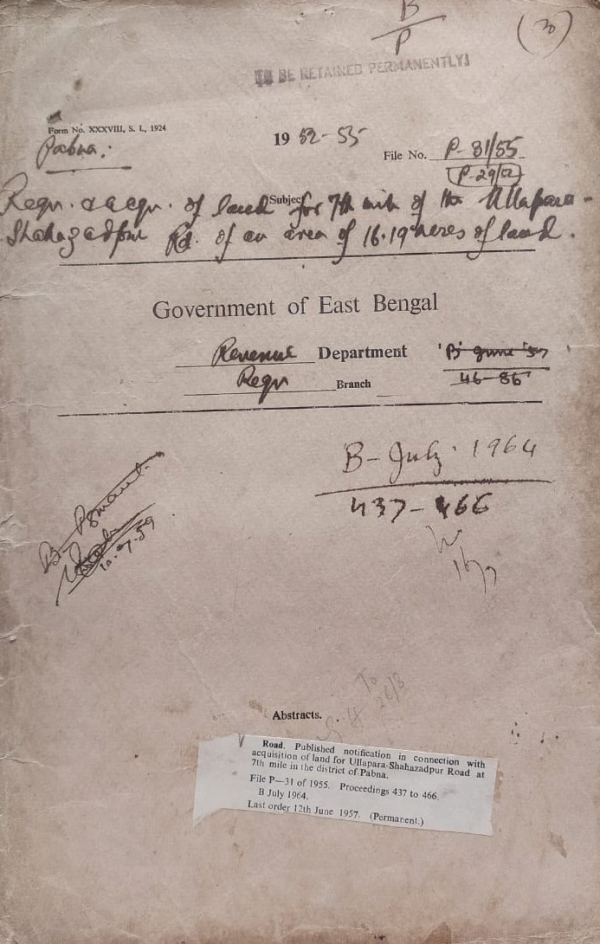 B
P
(3)
TO BE RETAINED PERMANENTLY
Form No. XXXVIII, S. I., 1924
Pabna:
19 52-55
File No. P-31/55
P-29/52
Subject
Reqn. & acqn. of land for 7th mile of the Ullapara-
Shahazadpur Rd. of an area of 16.19 acres of land.
Government of East Bengal
Revenue Department 'B' June '57
Reqn Branch 46-86
B- July 1964
437-466
16/7
10.7.59
To
26/8
Abstracts.
Road. Published notification in connection with
acquisition of land for Ullapara-Shahazadpur Road at
7th mile in the district of Pabna.
File P—31 of 1955. Proceedings 437 to 466.
B July 1964.
Last order 12th June 1957. (Permanent.)